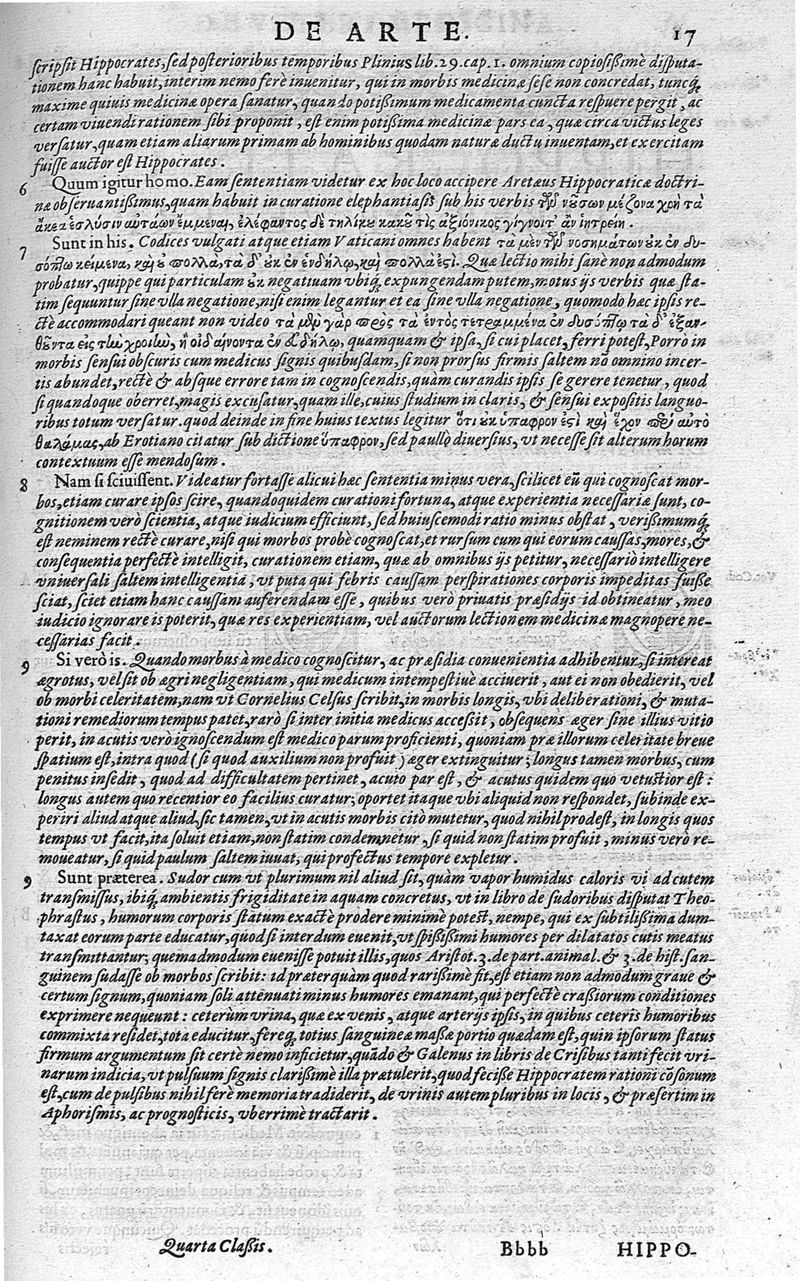 DE ARTE. 17
scripsit Hippocrates, sed posterioribus temporibus Plinius lib. 29. cap. 1. omnium copiosissimè disputa-
tionem hanc habuit, interim nemo ferè inuenitur, qui in morbis medicinæ sese non concredat, tuncq;
maxime quiuis medicinæ opera sanatur, quando potissimum medicamenta cuncta respuere pergit, ac
certam viuendi rationem sibi proponit, est enim potissima medicinæ pars ea, quæ circa victus leges
versatur, quam etiam aliarum primam ab hominibus quodam naturæ ductu inuentam, et exercitam
fuisse auctor est Hippocrates.
6 Quum igitur homo. Eam sententiam videtur ex hoc loco accipere Aretæus Hippocraticæ doctri-
næ obseruantissimus, quam habuit in curatione elephantiasis sub his verbis τῶν νούσων μέζονα χρὴ τὰ
ἄκεα ἐς λύσιν αὐτάων ἔμμεναι, ἐλέφαντος δὲ τηλίκου κακοῦ τίς ἀξιόνικος γίγνοιτ᾽ ἂν ἰητρείη.
7 Sunt in his. Codices vulgati atque etiam Vaticani omnes habent τὰ μὲν τῶν νοσημάτων οὐκ ἐν δυ-
σόπτῳ κείμενα, καὶ οὐ πολλὰ, τὰ δ᾽ οὐκ ἐν ἐνδήλῳ, καὶ πολλὰ ἐςί. Quæ lectio mihi sanè non admodum
probatur, quippe qui particulam οὐκ negatiuam vbiq; expungendam putem, motus ijs verbis quæ sta-
tim sequuntur sine vlla negatione, nisi enim legantur et ea sine vlla negatione, quomodo hæc ipsis re-
ctè accommodari queant non video τὰ μὲν γὰρ πρὸς τὰ ἐντὸς τετραμμένα ἐν δυσόπτῳ τὰ δ᾽ ἐξαν-
θοῦντα εἰς τὴν χροιὴν, ἢ οἰδαίνοντα ἐν εὐδήλῳ, quamquam & ipsa, si cui placet, ferri potest, Porrò in
morbis sensui obscuris cum medicus signis quibusdam, si non prorsus firmis saltem nõ omnino incer-
tis abundet, rectè & absque errore tam in cognoscendis, quàm curandis ipsis se gerere tenetur, quod
si quandoque oberret, magis excusatur, quam ille, cuius studium in claris, & sensui expositis languo-
ribus totum versatur. quod deinde in fine huius textus legitur ὅτι οὐκ ὕπαφρον ἐςὶ καὶ ἔχον περὶ αὐτὸ
θαλάμας, ab Erotiano citatur sub dictione ὕπαφρον, sed paullo diuersius, vt necesse sit alterum horum
contextuum esse mendosum.
8 Nam si sciuissent. Videatur fortasse alicui hæc sententia minus vera, scilicet eũ qui cognoscat mor-
bos, etiam curare ipsos scire, quandoquidem curationi fortuna, atque experientia necessariæ sunt, co-
gnitionem verò scientia, atque iudicium efficiunt, sed huiuscemodi ratio minus obstat, verissimumq;
est neminem rectè curare, nisi qui morbos probè cognoscat, et rursum cum qui eorum caussas, mores, &
consequentia perfectè intelligit, curationem etiam, quæ ab omnibus ijs petitur, necessariò intelligere
vniuersali saltem intelligentia; vt puta qui febris caussam perspirationes corporis impeditas fuisse
sciat, sciet etiam hanc caussam auferendam esse, quibus verò priuatis præsidijs id obtineatur, meo
iudicio ignorare is poterit, quæ res experientiam, vel auctorum lectionem medicinæ magnopere ne-
cessarias facit.
9 Si verò is. Quando morbus à medico cognoscitur, ac præsidia conuenientia adhibentur, si intereat
ægrotus, vel sit ob ægri negligentiam, qui medicum intempestiuè acciuerit, aut ei non obedierit, vel
ob morbi celeritatem, nam vt Cornelius Celsus scribit, in morbis longis, vbi deliberationi, & muta-
tioni remediorum tempus patet, rarò si inter initia medicus accessit, obsequens æger sine illius vitio
perit, in acutis verò ignoscendum est medico parum proficienti, quoniam præ illorum celeritate breue
spatium est, intra quod (si quod auxilium non profuit) æger extinguitur; longus tamen morbus, cum
penitus insedit, quod ad difficultatem pertinet, acuto par est, & acutus quidem quo vetustior est:
longus autem quo recentior eo facilius curatur; oportet itaque vbi aliquid non respondet, subinde ex-
periri aliud atque aliud, sic tamen, vt in acutis morbis citò mutetur, quod nihil prodest, in longis quos
tempus vt facit, ita soluit etiam, non statim condemnetur, si quid non statim profuit, minus verò re-
moueatur, si quid paulum saltem iuuat, qui profectus tempore expletur.
9 Sunt præterea. Sudor cum vt plurimum nil aliud sit, quàm vapor humidus caloris vi ad cutem
transmissus, ibiq; ambientis frigiditate in aquam concretus, vt in libro de sudoribus disputat Theo-
phrastus, humorum corporis statum exactè prodere minimè potest, nempe, qui ex subtilissima dum-
taxat eorum parte educatur, quod si interdum euenit, vt spississimi humores per dilatatos cutis meatus
transmittantur; quemadmodum euenisse potuit illis, quos Aristot. 3. de part. animal. & 3. de hist. san-
guinem sudasse ob morbos scribit: id præterquàm quod rarissimè fit, est etiam non admodum graue &
certum signum, quoniam soli attenuati minus humores emanant, qui perfectè crassiorum conditiones
exprimere nequeunt: ceterùm vrina, quæ ex venis, atque arterijs ipsis, in quibus ceteris humoribus
commixta residet, tota educitur, fereq; totius sanguineæ massæ portio quædam est, quin ipsorum status
firmum argumentum sit certè nemo inficietur, quãdo & Galenus in libris de Crisibus tanti fecit vri-
narum indicia, vt pulsuum signis clarissimè illa prætulerit, quod fecisse Hippocratem rationi cõsonum
est, cum de pulsibus nihil ferè memoria tradiderit, de vrinis autem pluribus in locis, & præsertim in
Aphorismis, ac prognosticis, vberrimè tractarit.
Quarta Classis. Bbbb HIPPO-